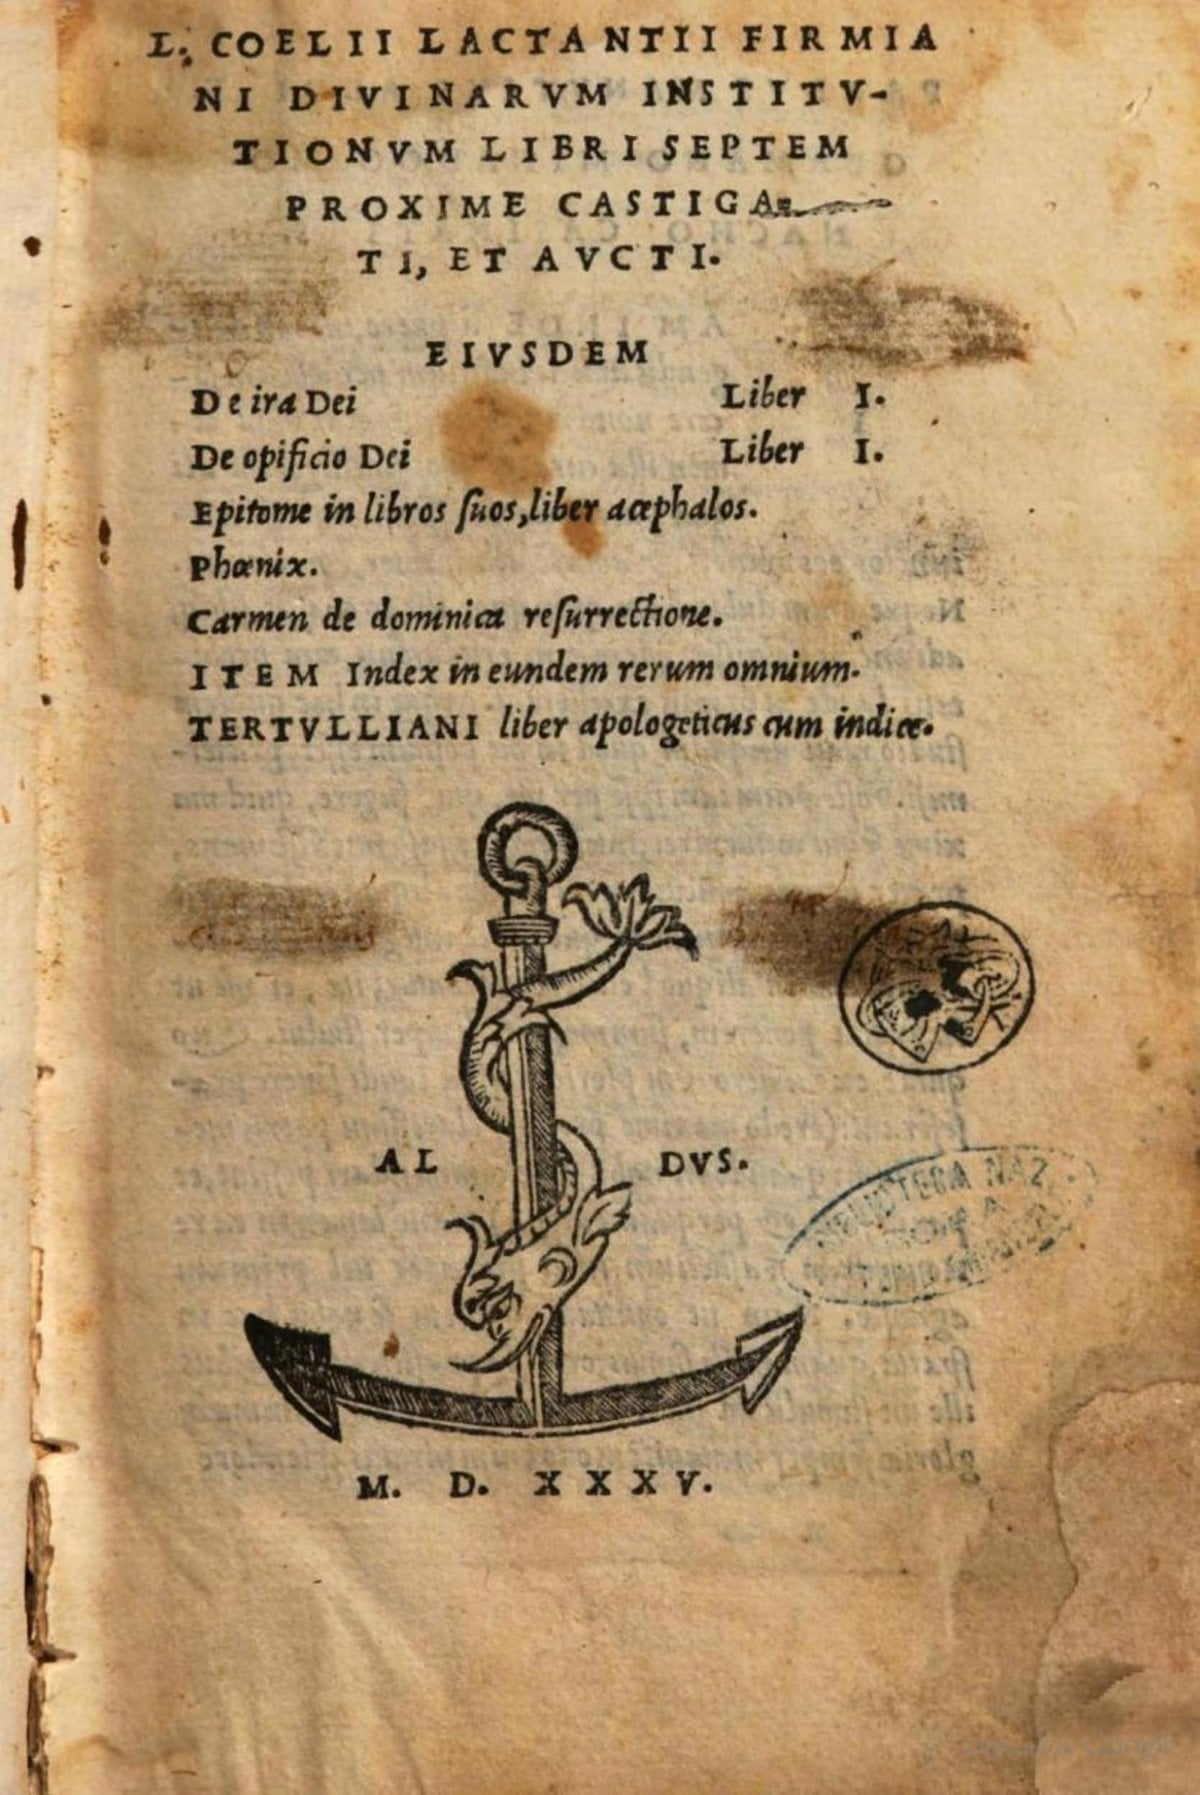 L. COELII LACTANTII FIRMIA
NI DIVINARVM INSTITV-
TIONVM LIBRI SEPTEM
PROXIME CASTIGA-
TI, ET AVCTI.
EIVSDEM
De ira Dei Liber I.
De opificio Dei Liber I.
Epitome in libros suos, liber acephalos.
Phœnix.
Carmen de dominica resurrectione.
ITEM Index in eundem rerum omnium.
TERTVLLIANI liber apologeticus cum indice.
AL DVS.
M. D. XXXV.